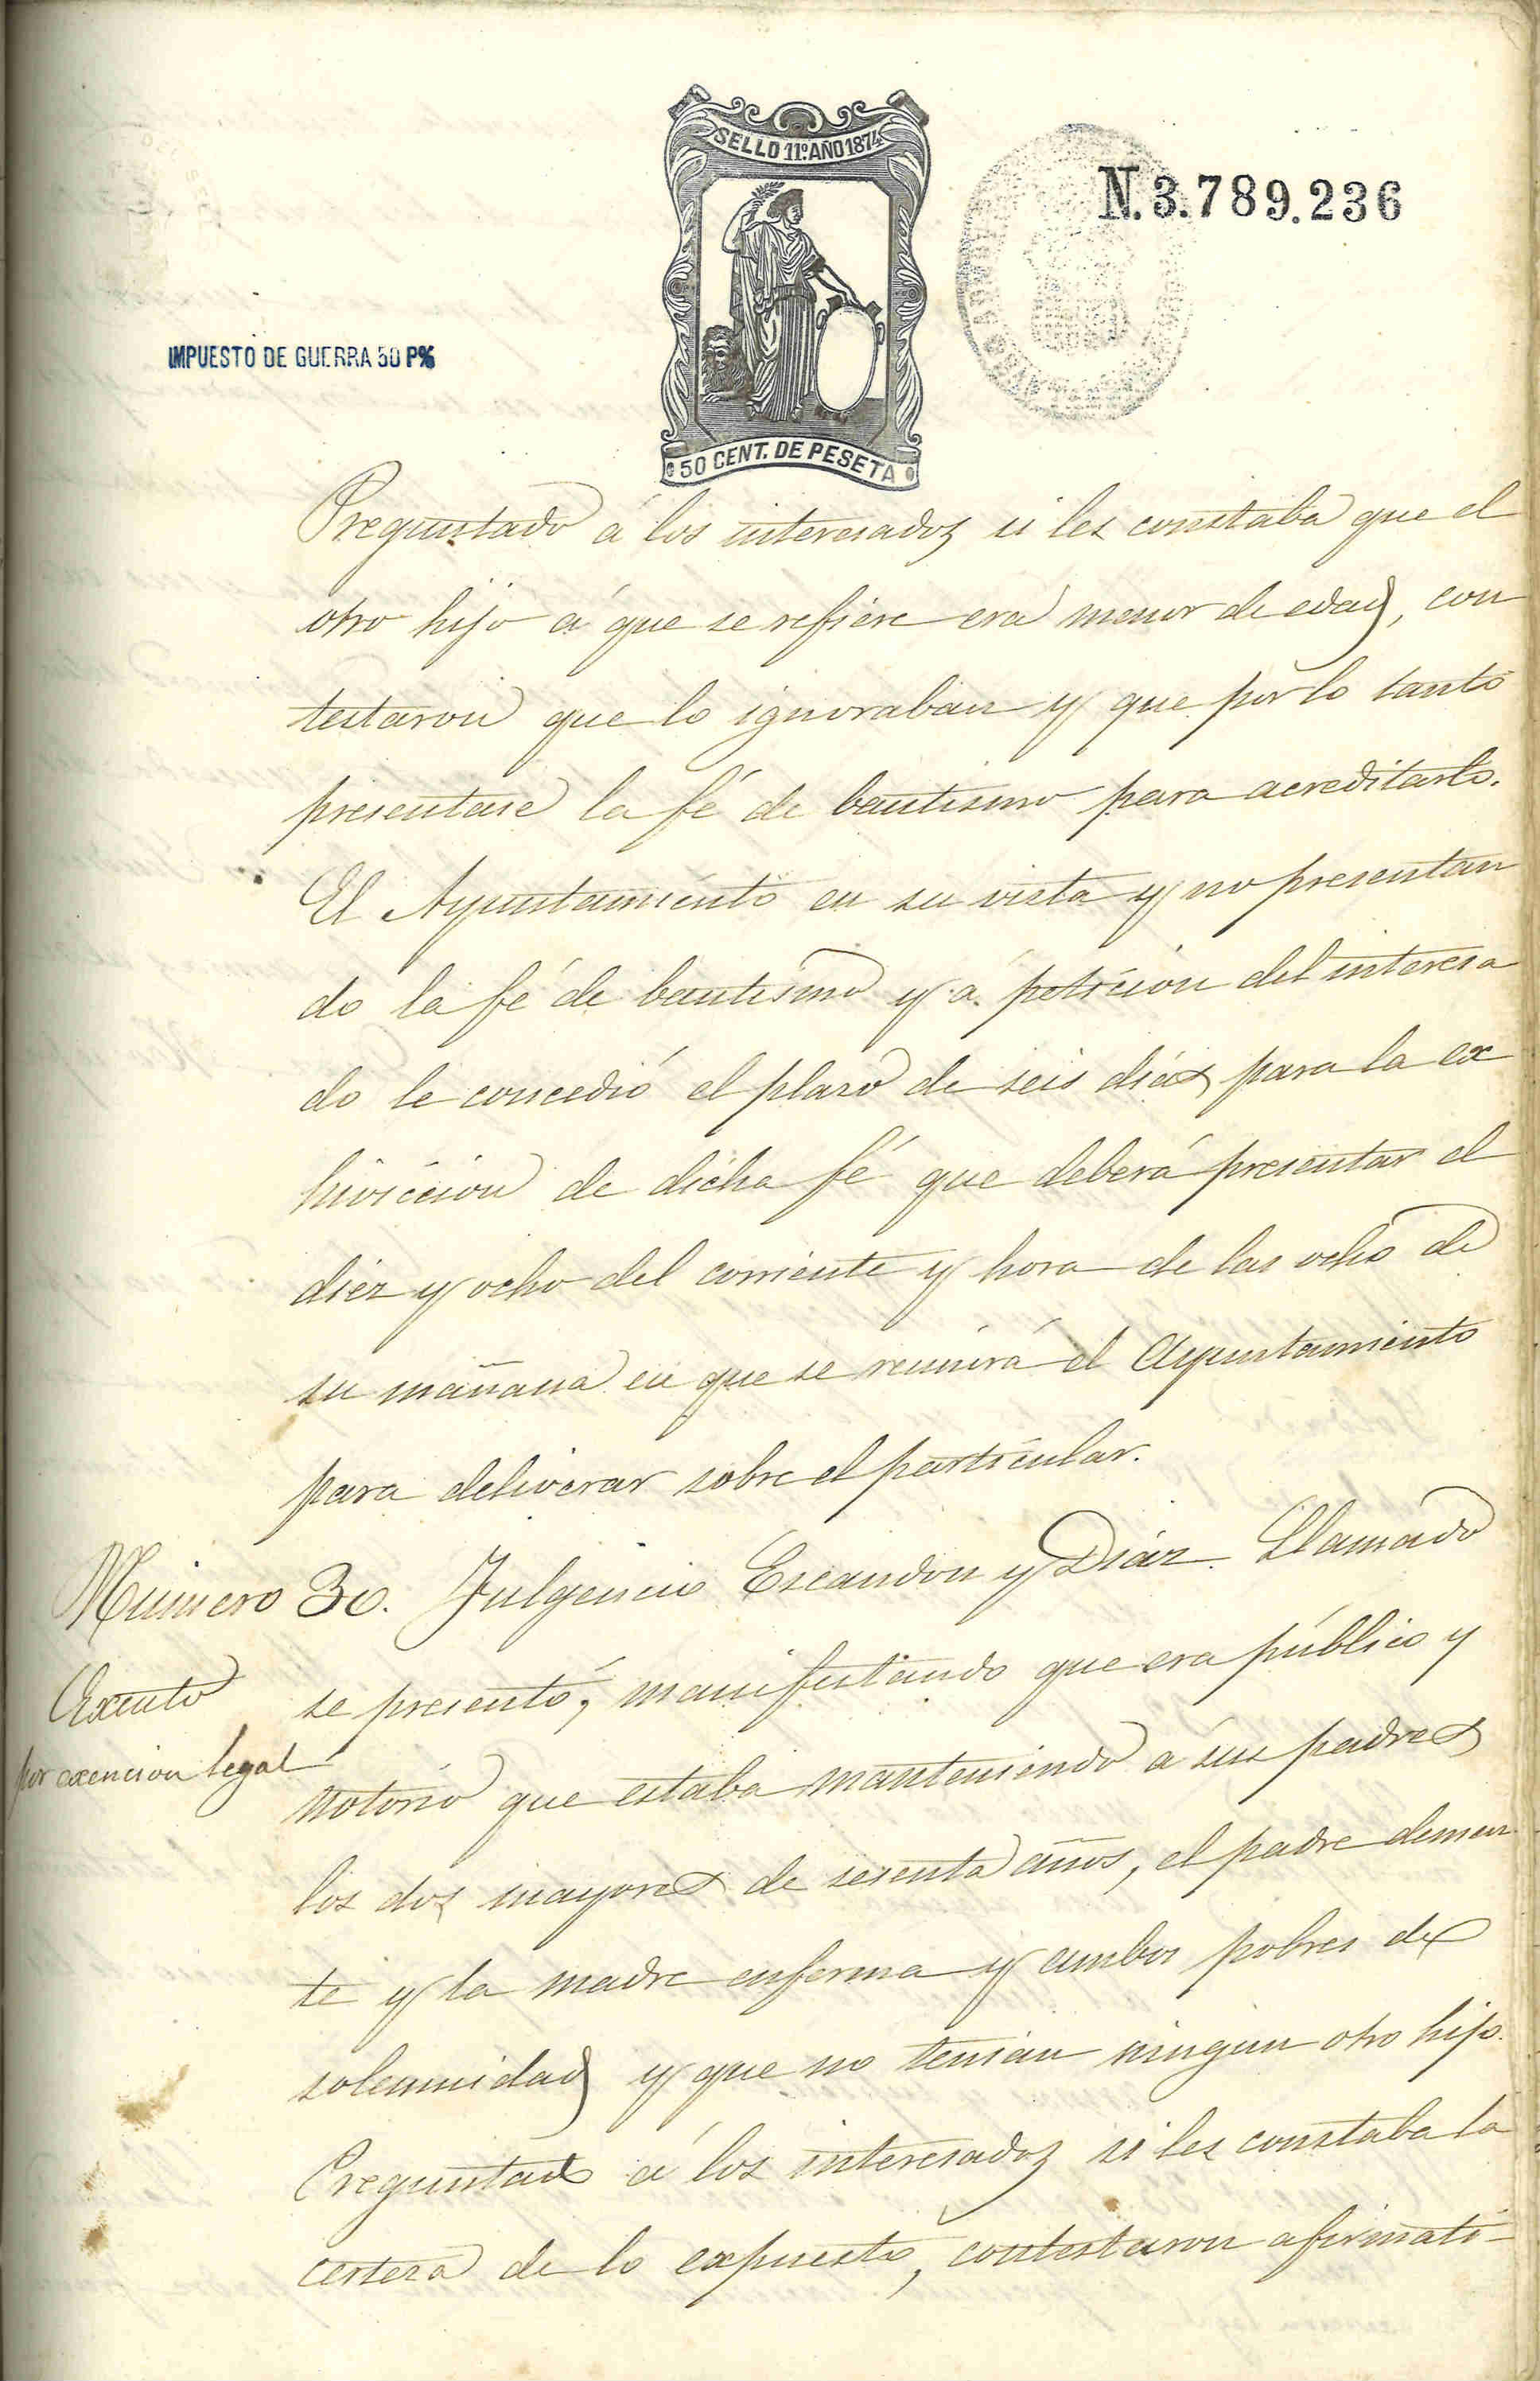 SELLO 11º AÑO 1874
N. 3.789.236
IMPUESTO DE GUERRA 50 P%
50 CENT. DE PESETA
Preguntado á los interesados si les constaba que el
otro hijo á que se refiere era menor de edad, con
testaron que lo ignoraban y que por lo tanto
presentase la fé de bautismo para acreditarlo.
El Ayuntamiento en su vista y no presentan
do la fé de bautismo y á peticion del interesa
do le concedió el plaso de seis dias para la ex
hiviccion de dicha fé que deberá presentar el
diez y ocho del corriente y hora de las ocho de
su mañana en que se reunirá el Ayuntamiento
para deliverar sobre el particular.
Numero 30. Fulgencio Escandon y Diáz. Llamado
Exento
por exencion legal
se presentó, manifestando que era público y
notorio que estaba manteniendo á sus padres
los dos mayores de sesenta años, el padre demen
te y la madre enferma y ambos pobres de
solemnidad y que no tenian ningun otro hijo.
Preguntado á los interesados si les constaba la
certeza de lo expuesto, contestaron afirmati-